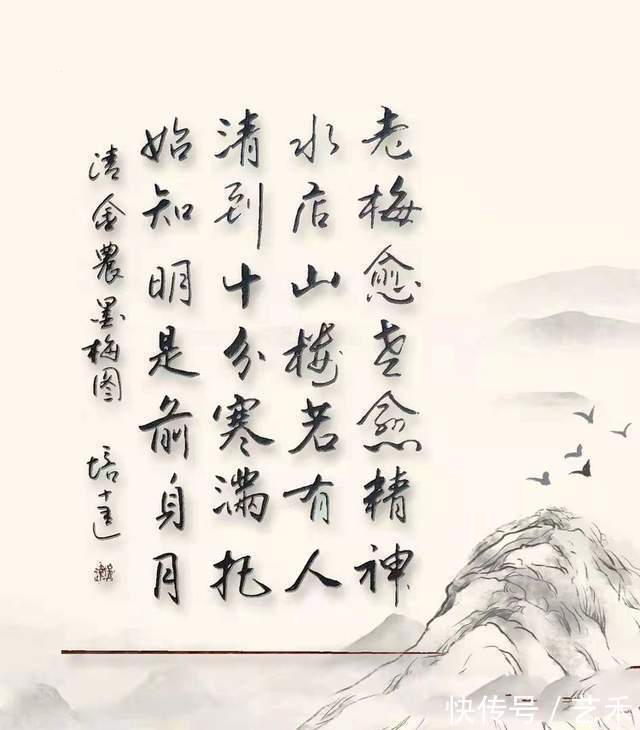 老梅愈老愈精神
水店山楼若有人
清到十分寒满把
始知明是前身月
清金農墨梅图 培
快传号 / 艺禾